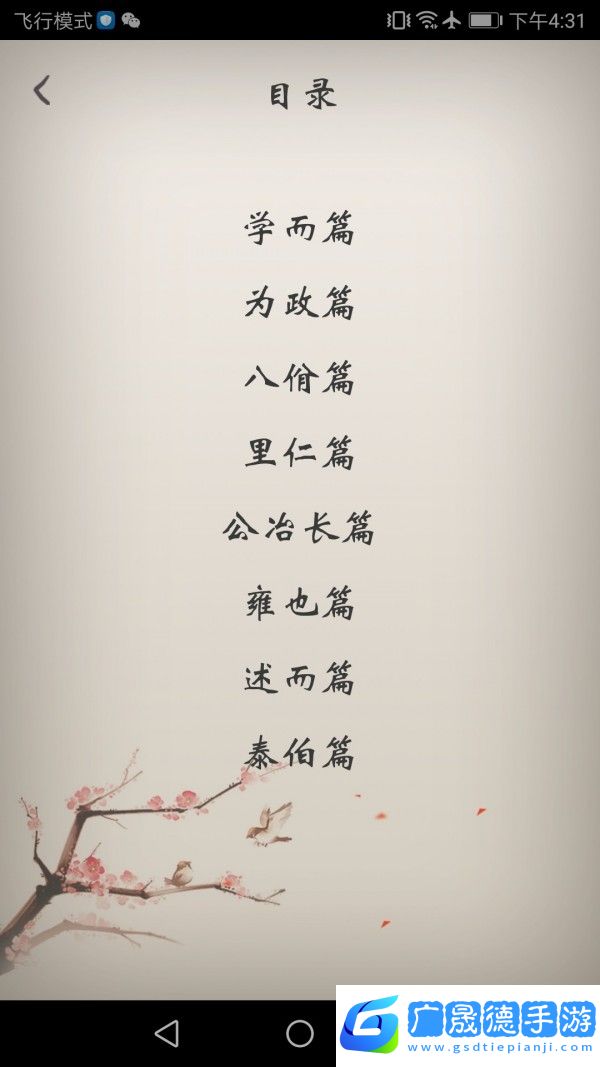 飞行模式 下午4:31
目录
学而篇
为政篇
八佾篇
里仁篇
公冶长篇
雍也篇
述而篇
泰伯篇
广晟德手游
www.gsdtiepianji.com